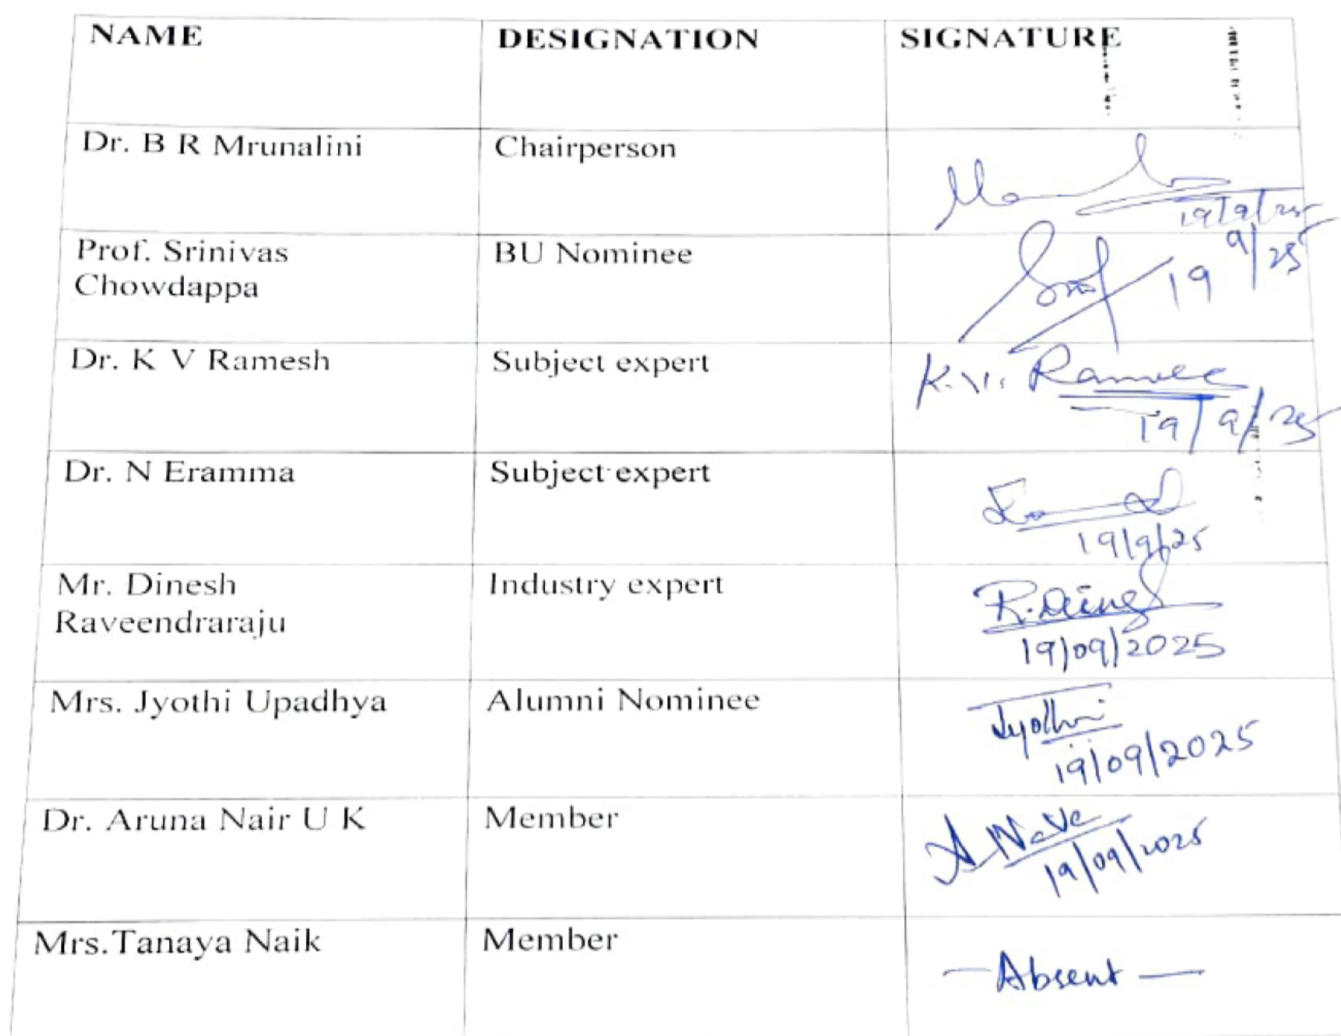 NAME DESIGNATION SIGNATURE
Dr. B R Mrunalini Chairperson
19/9/25
Prof. Srinivas BU Nominee
Chowdappa
19/9/25
Dr. K V Ramesh Subject expert K.V. Ramesh
19/9/25
Dr. N Eramma Subject expert
19/9/25
Mr. Dinesh Industry expert R. Dinesh
Raveendraraju
19/09/2025
Mrs. Jyothi Upadhya Alumni Nominee Jyothi
19/09/2025
Dr. Aruna Nair U K Member
19/09/2025
Mrs.Tanaya Naik Member
— Absent —